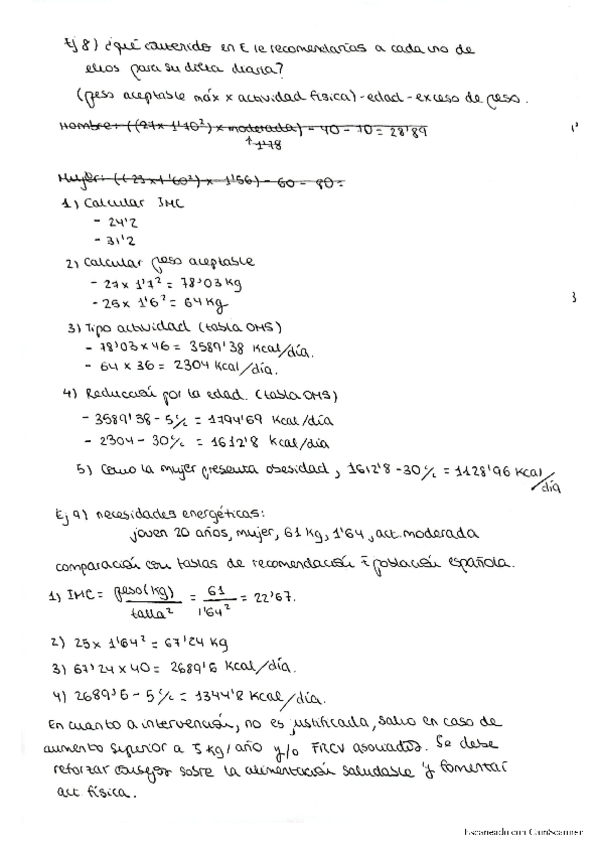 Ej 8) ¿qué contenido en E le recomendarías a cada uno de
ellos para su dieta diaria?
(peso aceptable máx x actividad física) - edad - exceso de peso.
Hombre: ((27 x 1'70²) x moderada) - 40 - 70 = 28'89
1'78
Mujer: ((25 x 1'60²) x 1'56) - 60 - 80 =
1) Calcular IMC
- 24'2
- 31'2
2) Calcular peso aceptable
- 27 x 1'7² = 78'03 kg
- 25 x 1'6² = 64 kg
3) Tipo actividad (tabla OMS)
- 78'03 x 46 = 3589'38 kcal/día.
- 64 x 36 = 2304 kcal/día.
4) Reducción por la edad. (tabla OMS)
- 3589'38 - 5% = 1794'69 kcal/día
- 2304 - 30% = 1612'8 kcal/día
5) Como la mujer presenta obesidad, 1612'8 - 30% = 1128'96 kcal/día
Ej 9) necesidades energéticas:
joven 20 años, mujer, 61 kg, 1'64, act. moderada
comparación con tablas de recomendación población española.
1) IMC = peso(kg) / talla² = 61 / 1'64² = 22'67.
2) 25 x 1'64² = 67'24 kg
3) 67'24 x 40 = 2689'6 kcal/día.
4) 2689'6 - 5% = 1344'8 kcal/día.
En cuanto a intervención, no es justificada, salvo en caso de
aumento superior a 5 kg/año y/o FRCV asociados. Se debe
reforzar consejos sobre la alimentación saludable y fomentar
act física.
Escaneado con CamScanner